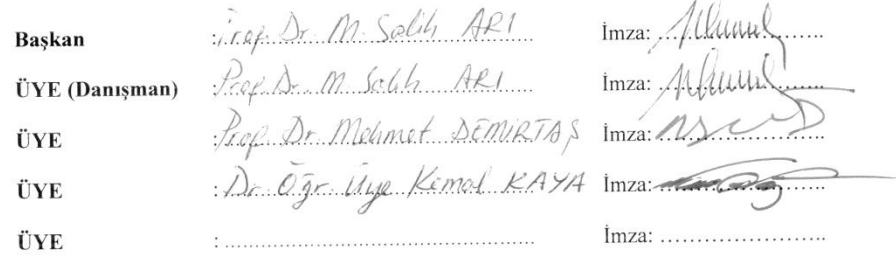 Başkan : Prof. Dr. M. Salih ARI İmza: ....................
ÜYE (Danışman) : Prof. Dr. M. Salih ARI İmza: ....................
ÜYE : Prof. Dr. Mehmet DEMİRTAŞ İmza: ....................
ÜYE : Dr. Öğr. Üye Kemal KAYA İmza: ....................
ÜYE : .................................................. İmza: ....................